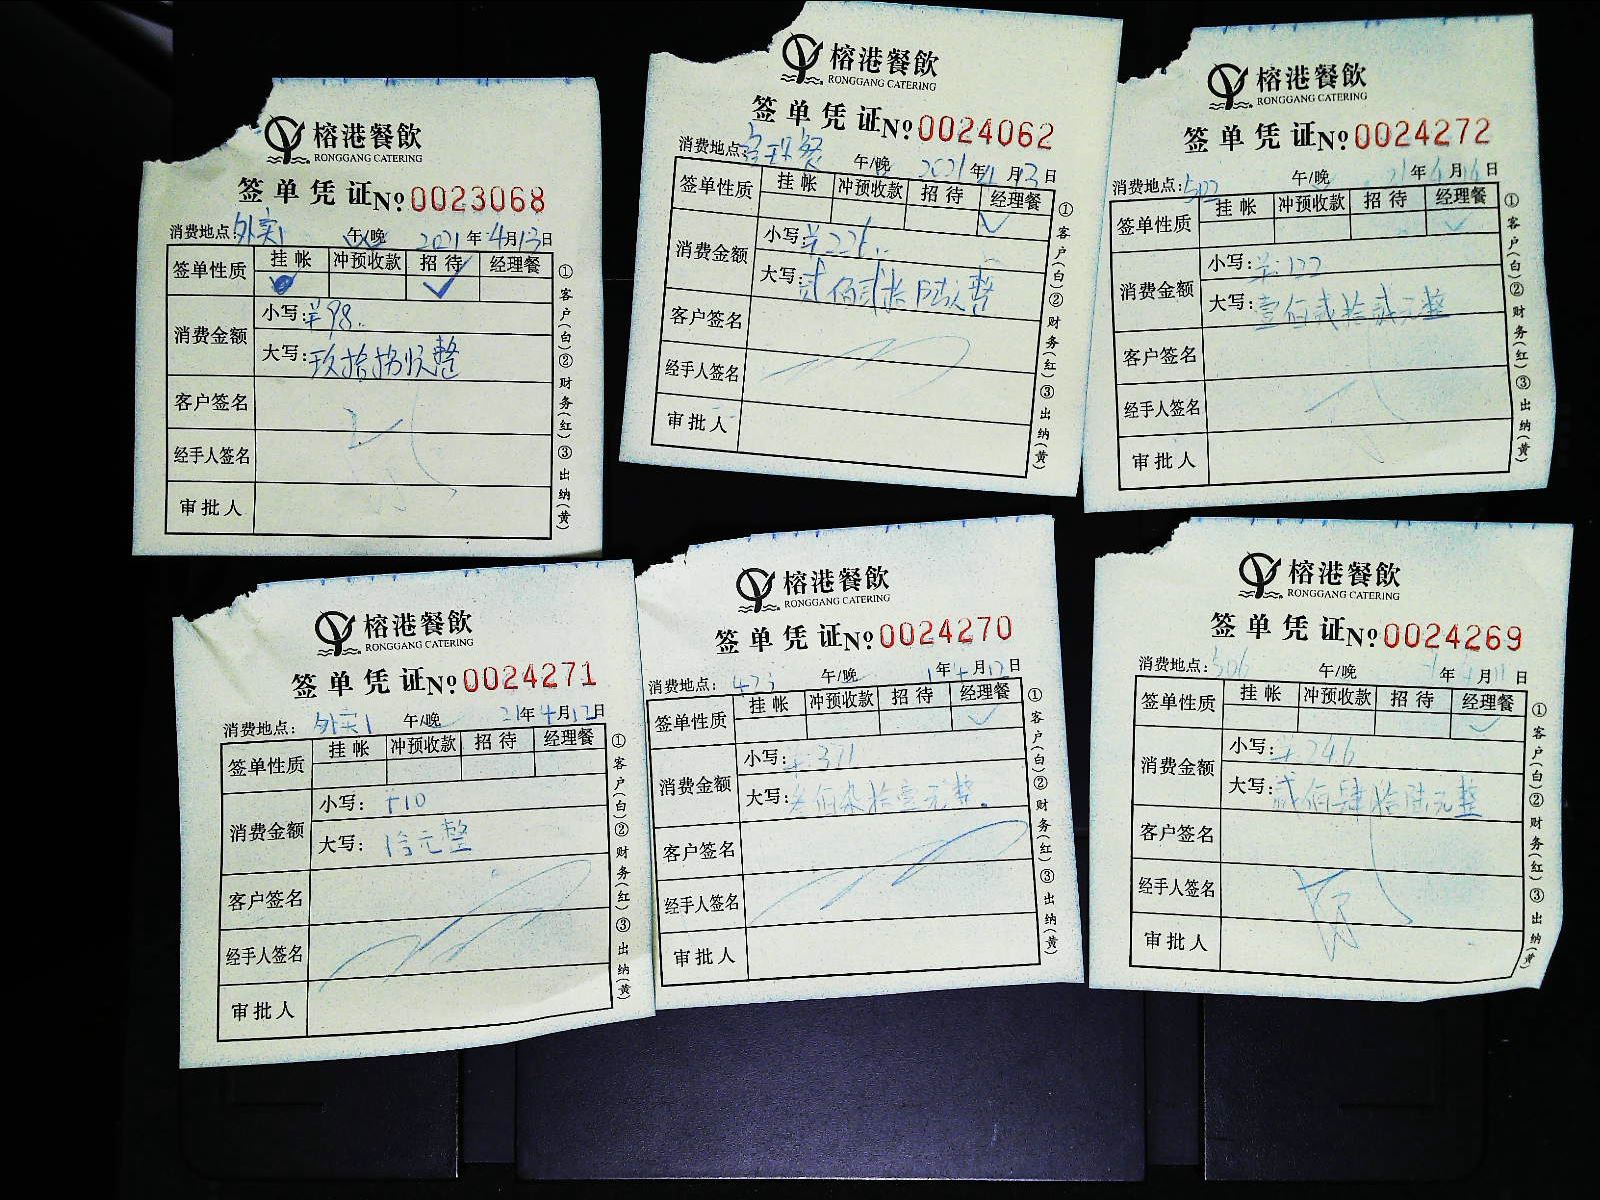 榕港餐飲
RONGGANG CATERING
签单凭证 No 0023068
消费地点:外卖1 午/晚 2021年4月13日
签单性质 挂帐 冲预收款 招待 经理餐
消费金额 小写:¥98.
大写:玖拾捌 整
客户签名
经手人签名
审批人
①客户(白)②财务(红)③出纳(黄)
榕港餐飲
RONGGANG CATERING
签单凭证 No 0024062
消费地点: 午/晚 2021年4月13日
签单性质 挂帐 冲预收款 招待 经理餐
消费金额 小写:¥226..
大写:贰佰贰拾陆元整
客户签名
经手人签名
审批人
①客户(白)②财务(红)③出纳(黄)
榕港餐飲
RONGGANG CATERING
签单凭证 No 0024272
消费地点:502 午/晚 21年4月16日
签单性质 挂帐 冲预收款 招待 经理餐
消费金额 小写:¥:122
大写:壹佰贰拾贰元整
客户签名
经手人签名
审批人
①客户(白)②财务(红)③出纳(黄)
榕港餐飲
RONGGANG CATERING
签单凭证 No 0024271
消费地点:外卖1 午/晚 21年4月12日
签单性质 挂帐 冲预收款 招待 经理餐
消费金额 小写:¥10
大写:拾元整
客户签名
经手人签名
审批人
①客户(白)②财务(红)③出纳(黄)
榕港餐飲
RONGGANG CATERING
签单凭证 No 0024270
消费地点:423 午/晚 年4月12日
签单性质 挂帐 冲预收款 招待 经理餐
消费金额 小写:¥:371
大写:叁佰柒拾壹元整.
客户签名
经手人签名
审批人
①客户(白)②财务(红)③出纳(黄)
榕港餐飲
RONGGANG CATERING
签单凭证 No 0024269
消费地点:506 午/晚 年4月11日
签单性质 挂帐 冲预收款 招待 经理餐
消费金额 小写:¥:246
大写:贰佰肆拾陆元整
客户签名
经手人签名
审批人
①客户(白)②财务(红)③出纳(黄)